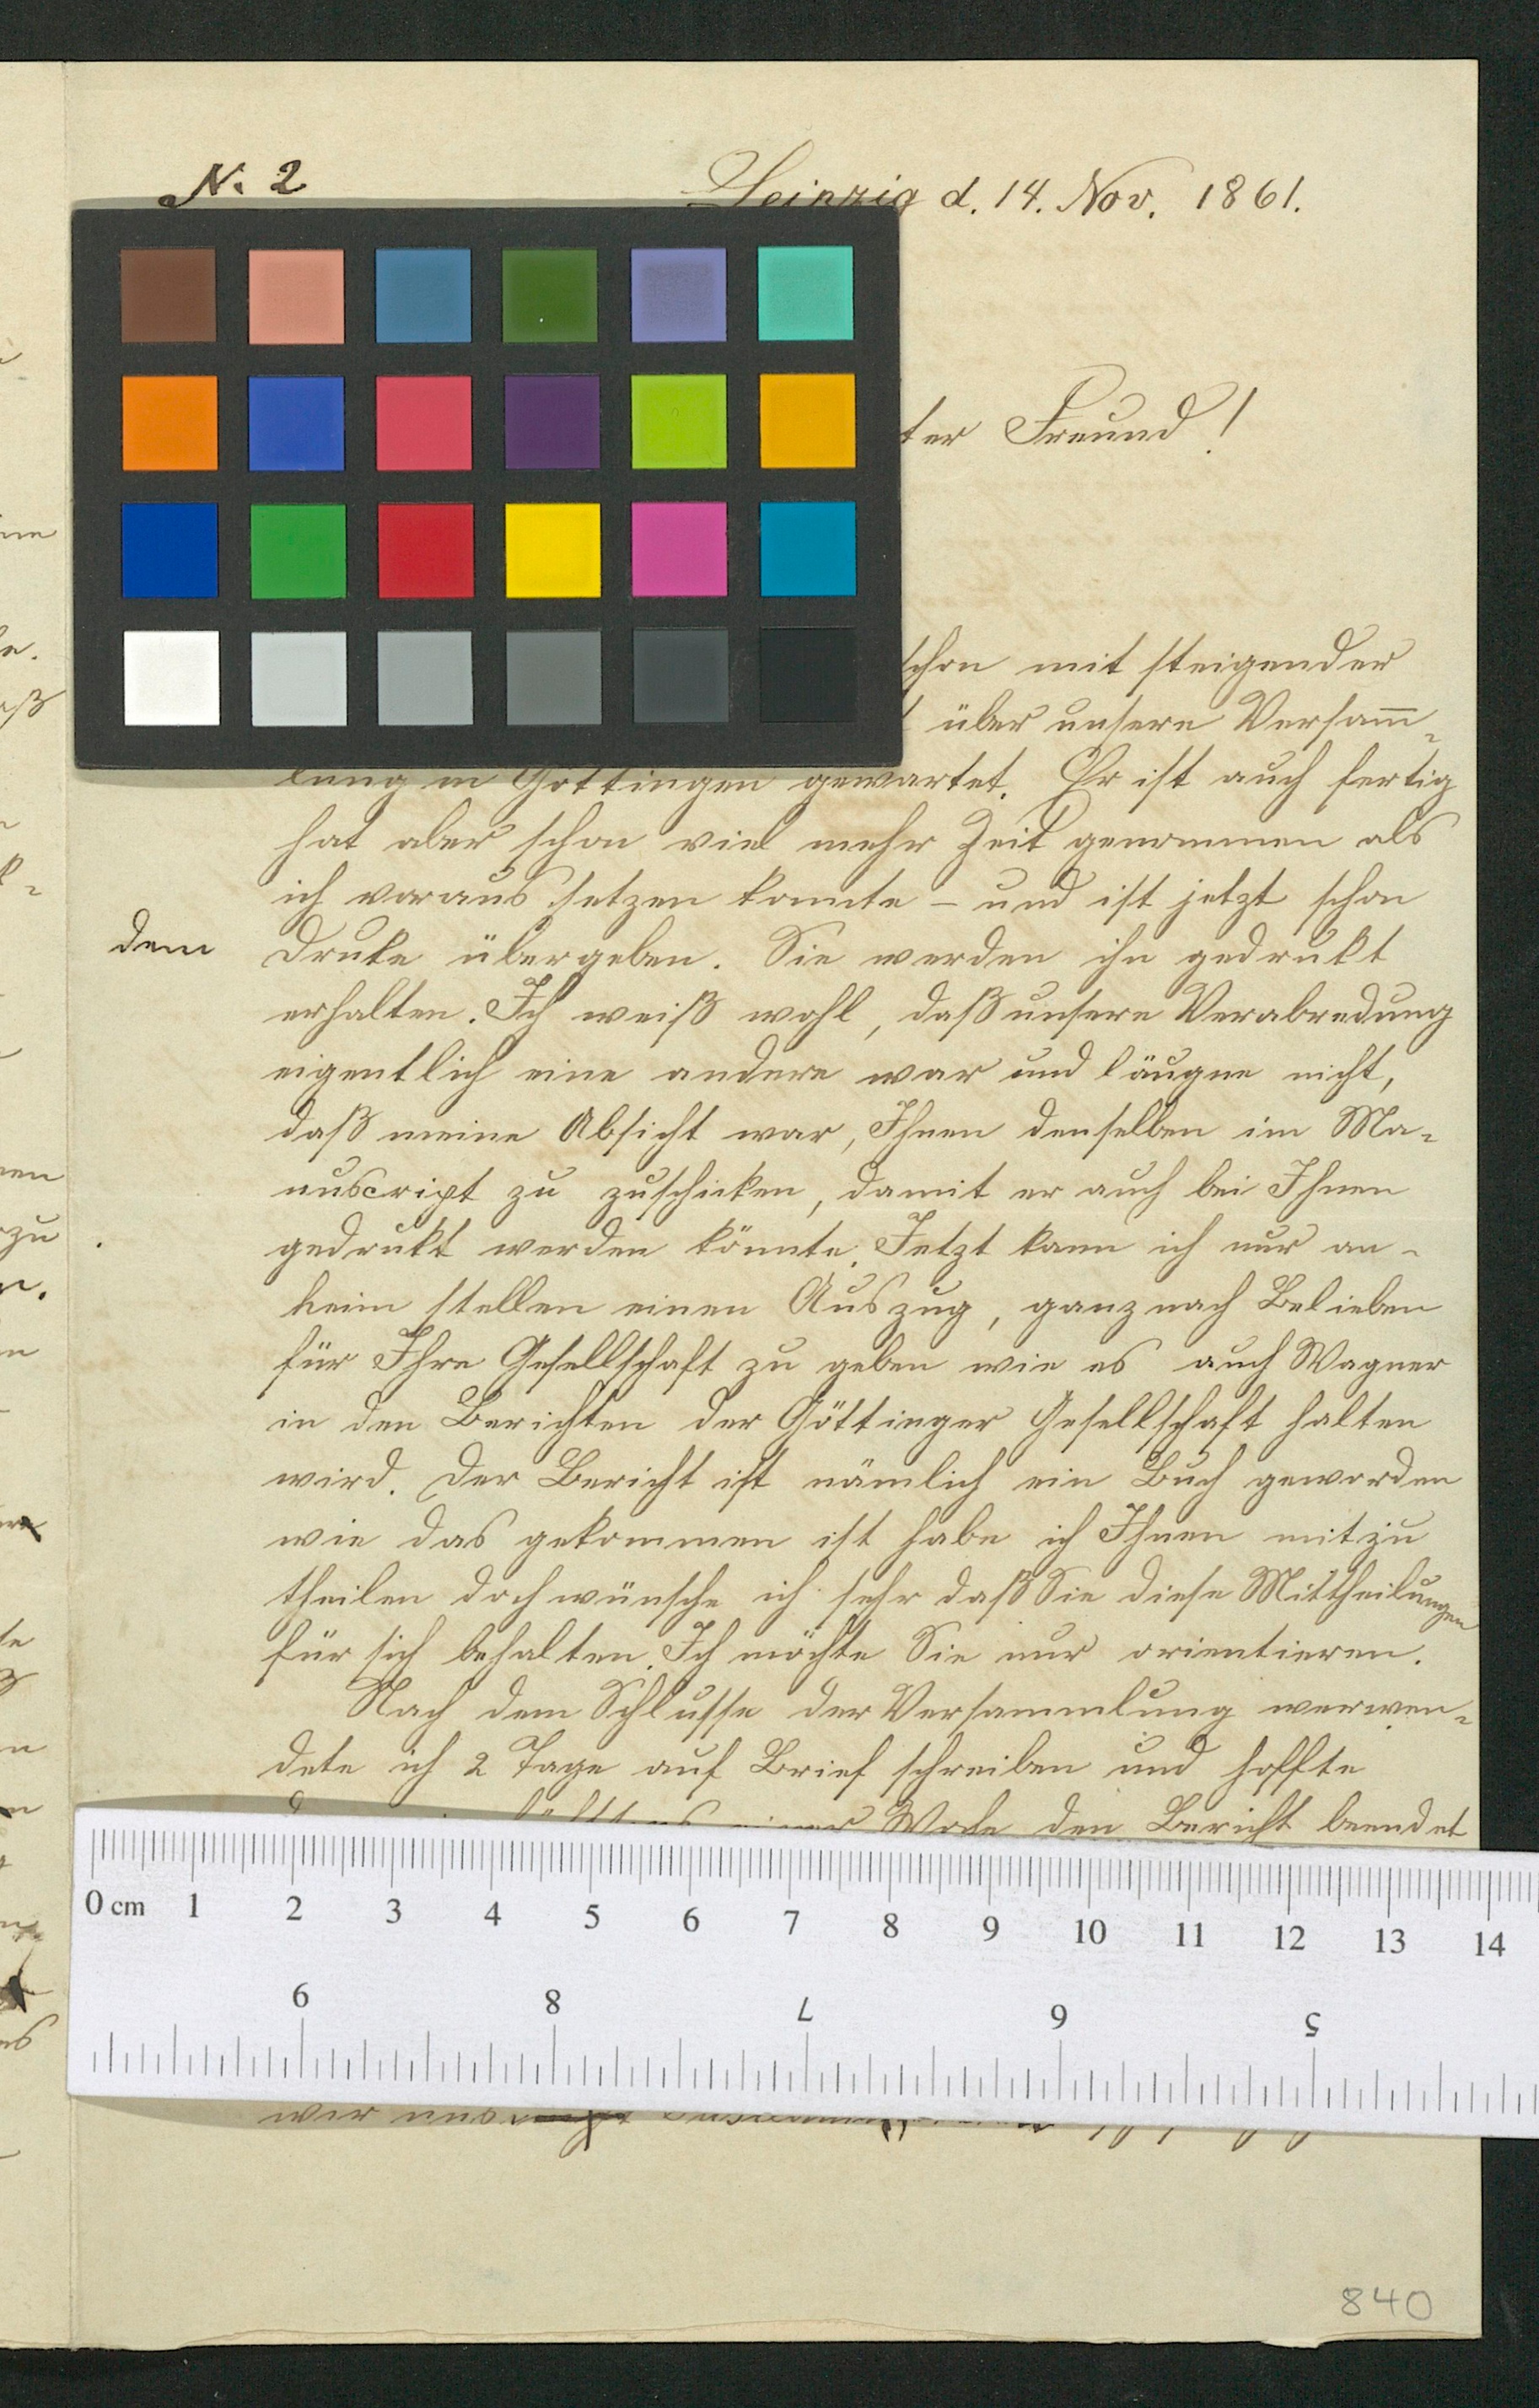 N. 2
Leipzig d. 14. Nov. 1861.
ter Freund!
schon mit steigender
über unsere Versam̅-
lung in Göttingen gewartet. Er ist auch fertig
hat aber schon viel mehr Zeit genommen als
ich voraus setzen konnte – und ist jetzt schon
dem Druke übergeben. Sie werden ihn gedrukt
erhalten. Ich weiß wohl, daß unsere Verabredung
eigentlich eine andere war und läugne nicht,
daß meine Absicht war, Ihnen denselben im Ma-
nuscript zu zuschicken, damit er auch bei Ihnen
gedrukt werden könnte. Jetzt kann ich nur an-
heim stellen einen Auszug, ganz nach Belieben
für Ihre Gesellschaft zu geben wie es auch Wagner
in den Berichten der Göttinger Gesellschaft halten
wird. Der Bericht ist nämlich ein Buch geworden
wie das gekommen ist habe ich Ihnen mitzu
theilen doch wünsche ich sehr daß Sie diese Mittheilungen
für sich behalten. Ich möchte Sie nur orientieren.
Nach dem Schlusse der Versammlung verwen-
dete ich 2 Tage auf Brief schreiben und hoffte
einer Woche den Bericht beendet
0 cm 1 2 3 4 5 6 7 8 9 10 11 12 13 14
9 8 7 6 5
wir uns
840